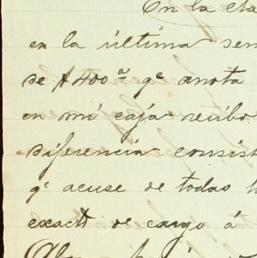 En la cta
en la última sem
de $400ª qe anota
en mi caja recibo
diferencia consist
qe acuse de todas l
exactt de cargo á